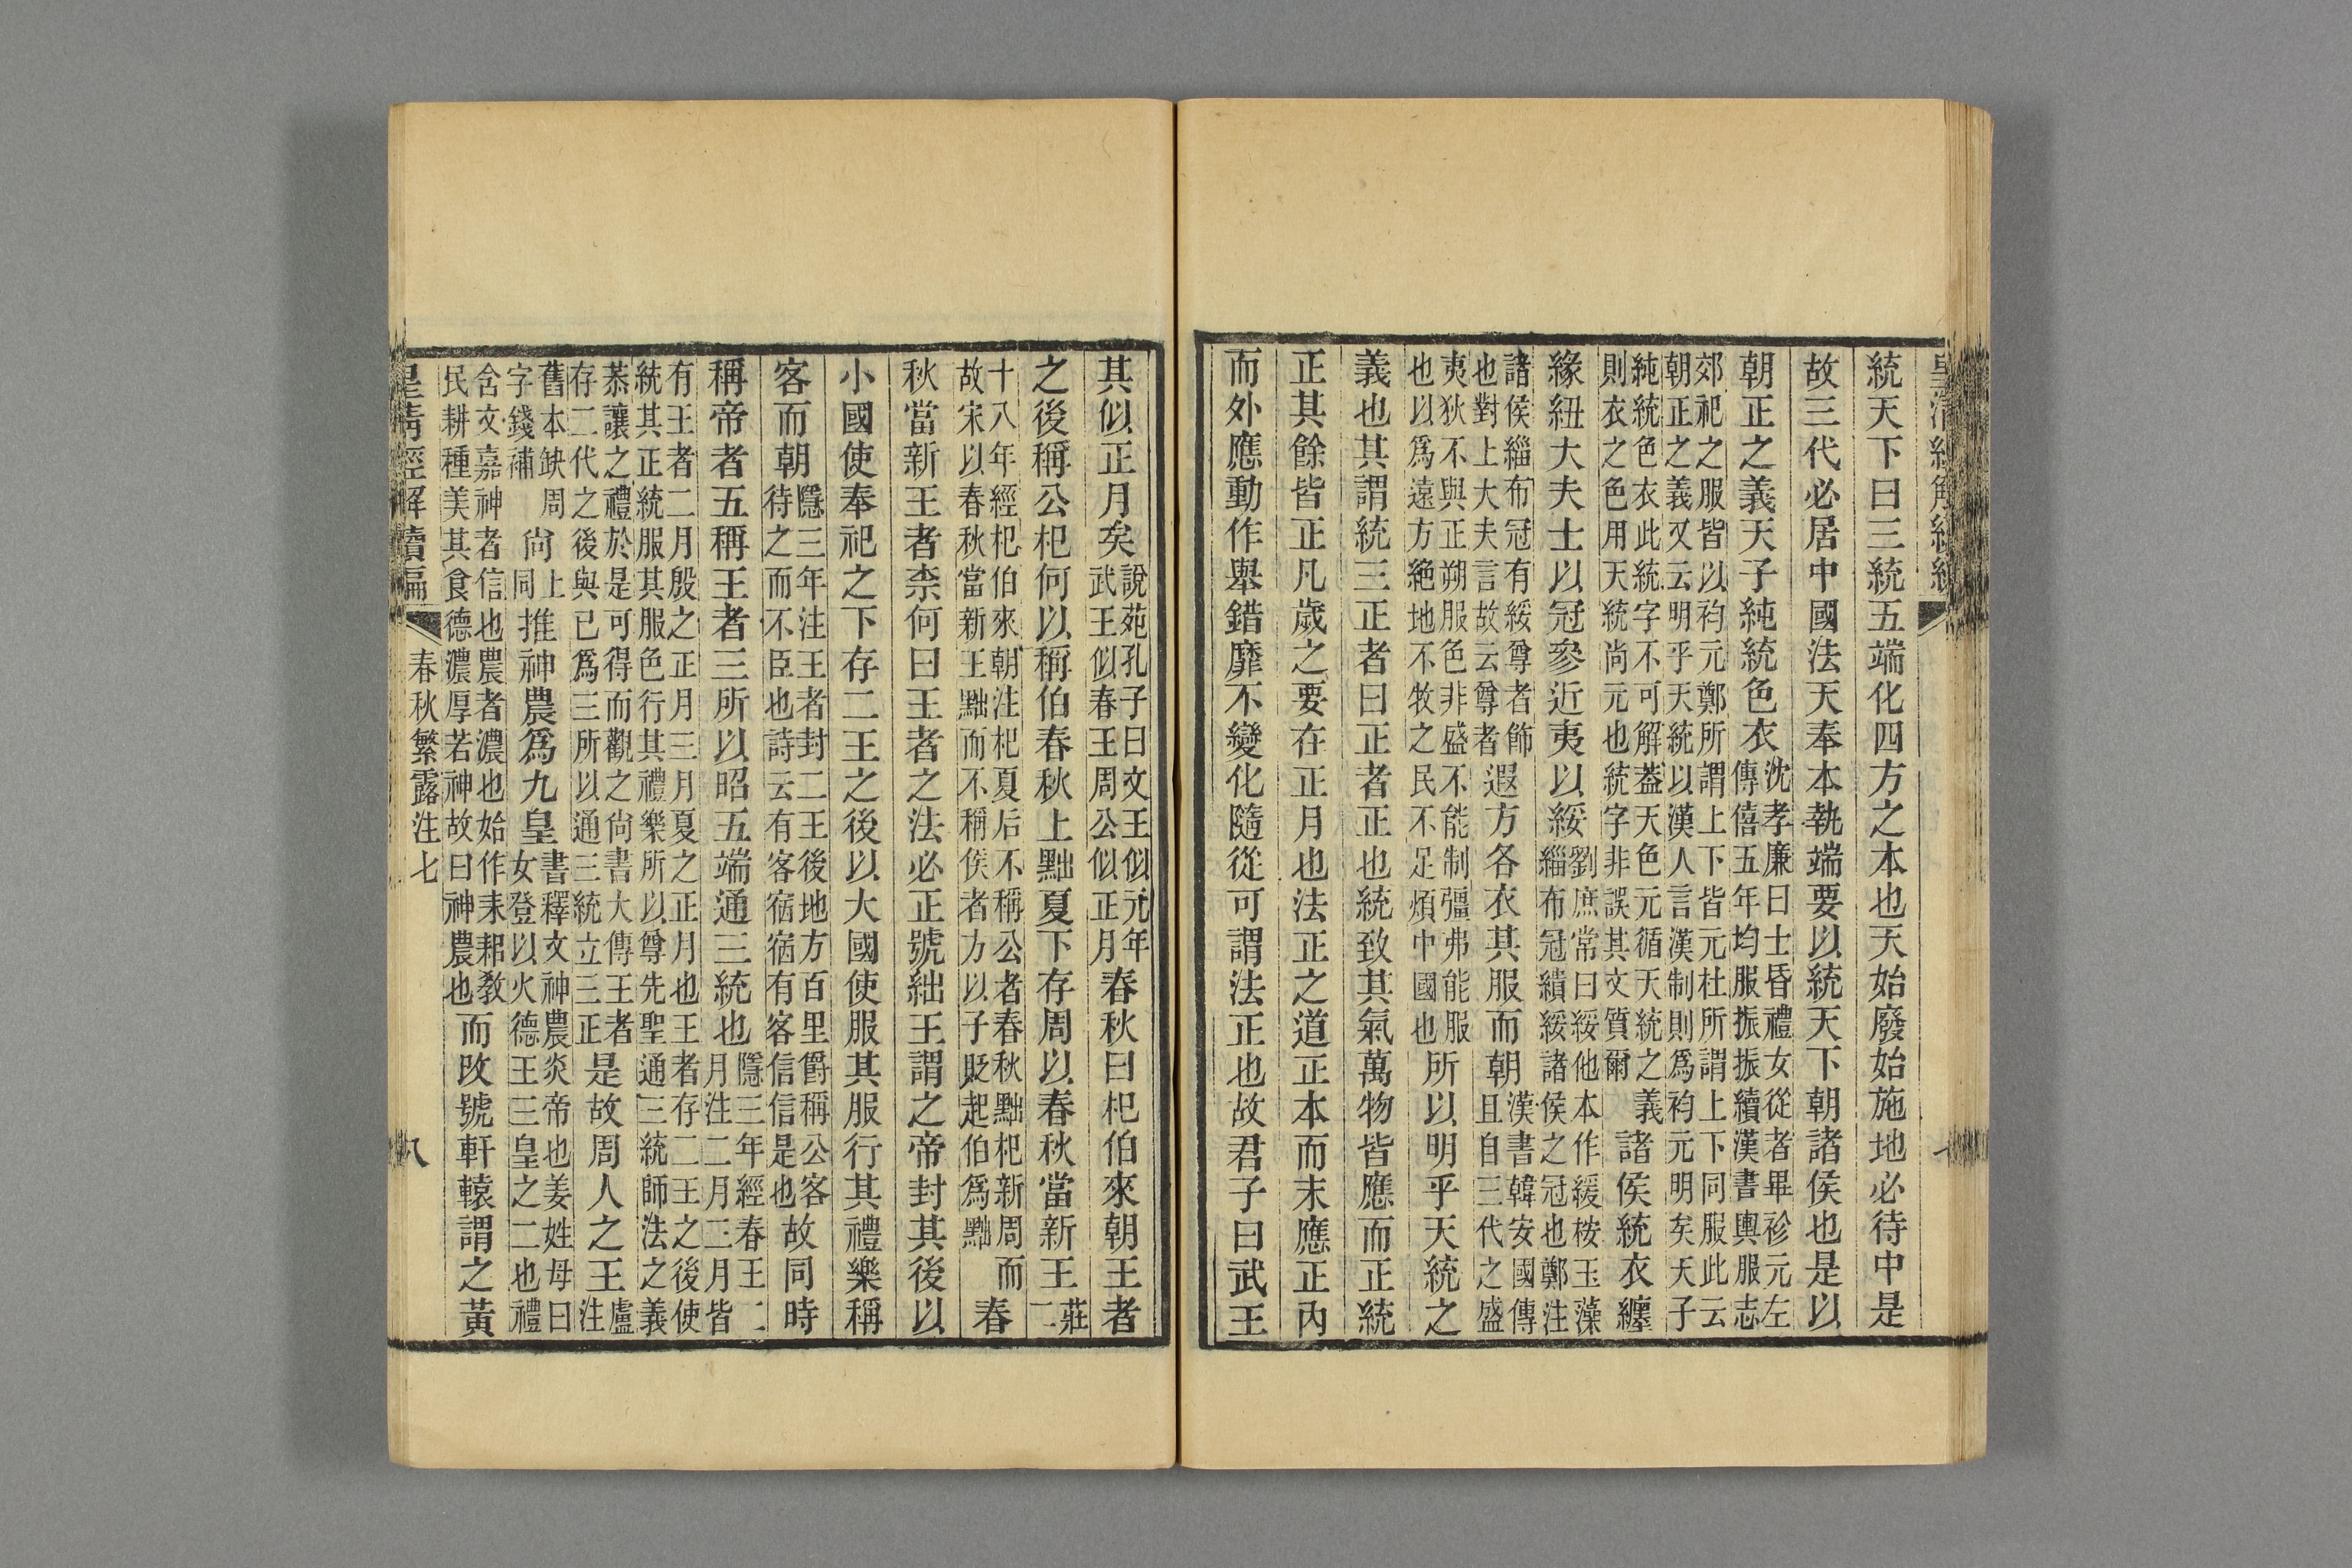 統天下曰三統五端化四方之本也天始廢始施地必待中是
故三代必居中國法天奉本執端要以統天下朝諸侯也是以
朝正之義天子純統色衣沈孝廉曰士昏禮女從者畢袗元左傳僖五年均服振振續漢書輿服志
郊祀之服皆以袀元鄭所謂上下皆元杜所謂上下同服此云朝正之義又云明乎天統以漢人言漢制則爲袀元明矣天子
純統色衣此統字不可解葢天色元循天統之義則衣之色用天統尚元也統字非誤其文質爾諸侯統衣纏
緣紐大夫士以冠參近夷以綏劉庶常曰綏他本作緩桉玉藻緇布冠繢綏諸侯之冠也鄭注
諸侯緇布冠有綏尊者飾也對上大夫言故云尊者遐方各衣其服而朝漢書韓安國傳且自三代之盛
夷狄不與正朔服色非盛不能制彊弗能服也以爲遠方絶地不牧之民不足煩中國也所以明乎天統之
義也其謂統三正者曰正者正也統致其氣萬物皆應而正統
正其餘皆正凡歲之要在正月也法正之道正本而末應正內
而外應動作舉錯靡不變化隨從可謂法正也故君子曰武王
其似正月矣說苑孔子曰文王似元年武王似春王周公似正月春秋曰杞伯來朝王者
之後稱公杞何以稱伯春秋上黜夏下存周以春秋當新王莊二
十八年經杞伯來朝注杞夏后不稱公者春秋黜杞新周而故宋以春秋當新王黜而不稱侯者方以子貶起伯爲黜春
秋當新王者柰何曰王者之法必正號絀王謂之帝封其後以
小國使奉祀之下存二王之後以大國使服其服行其禮樂稱
客而朝隱三年注王者封二王後地方百里爵稱公客待之而不臣也詩云有客宿宿有客信信是也故同時
稱帝者五稱王者三所以昭五端通三統也隱三年經春王二月注二月三月皆
有王者二月殷之正月三月夏之正月也王者存二王之後使統其正統服其服色行其禮樂所以尊先聖通三統師法之義
恭讓之禮於是可得而觀之尚書大傳王者存二代之後與已爲三所以通三統立三正是故周人之王盧注
舊本缺周字錢補尚上同推神農爲九皇書釋文神農炎帝也姜姓母曰女登以火德王三皇之二也禮
含文嘉神者信也農者濃也始作耒耜敎民耕種美其食德濃厚若神故曰神農也而改號軒轅謂之黃
皇清經解續編 春秋繁露注七 八